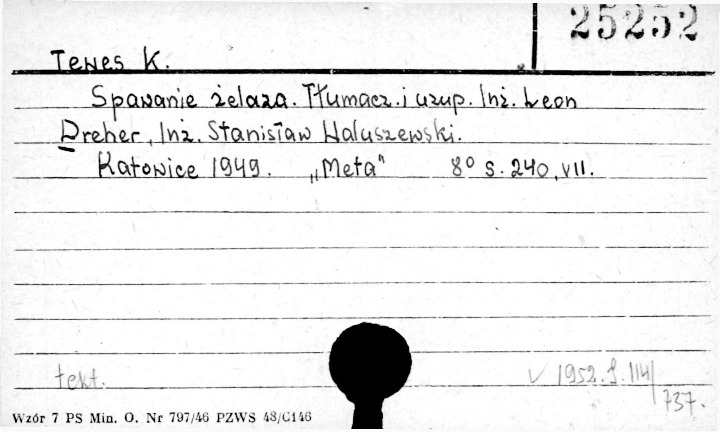 25252
Tewes K.
Spawanie żelaza. Tłumacz. i uzup. Inż. Leon
Dreher, Inż. Stanisław Waluszewski.
Katowice 1949. „Meta" 8° s. 240, VII.
tekt.
1952. J. 114/
737.
Wzór 7 PS Min. O. Nr 797/46 PZWS 48/C146